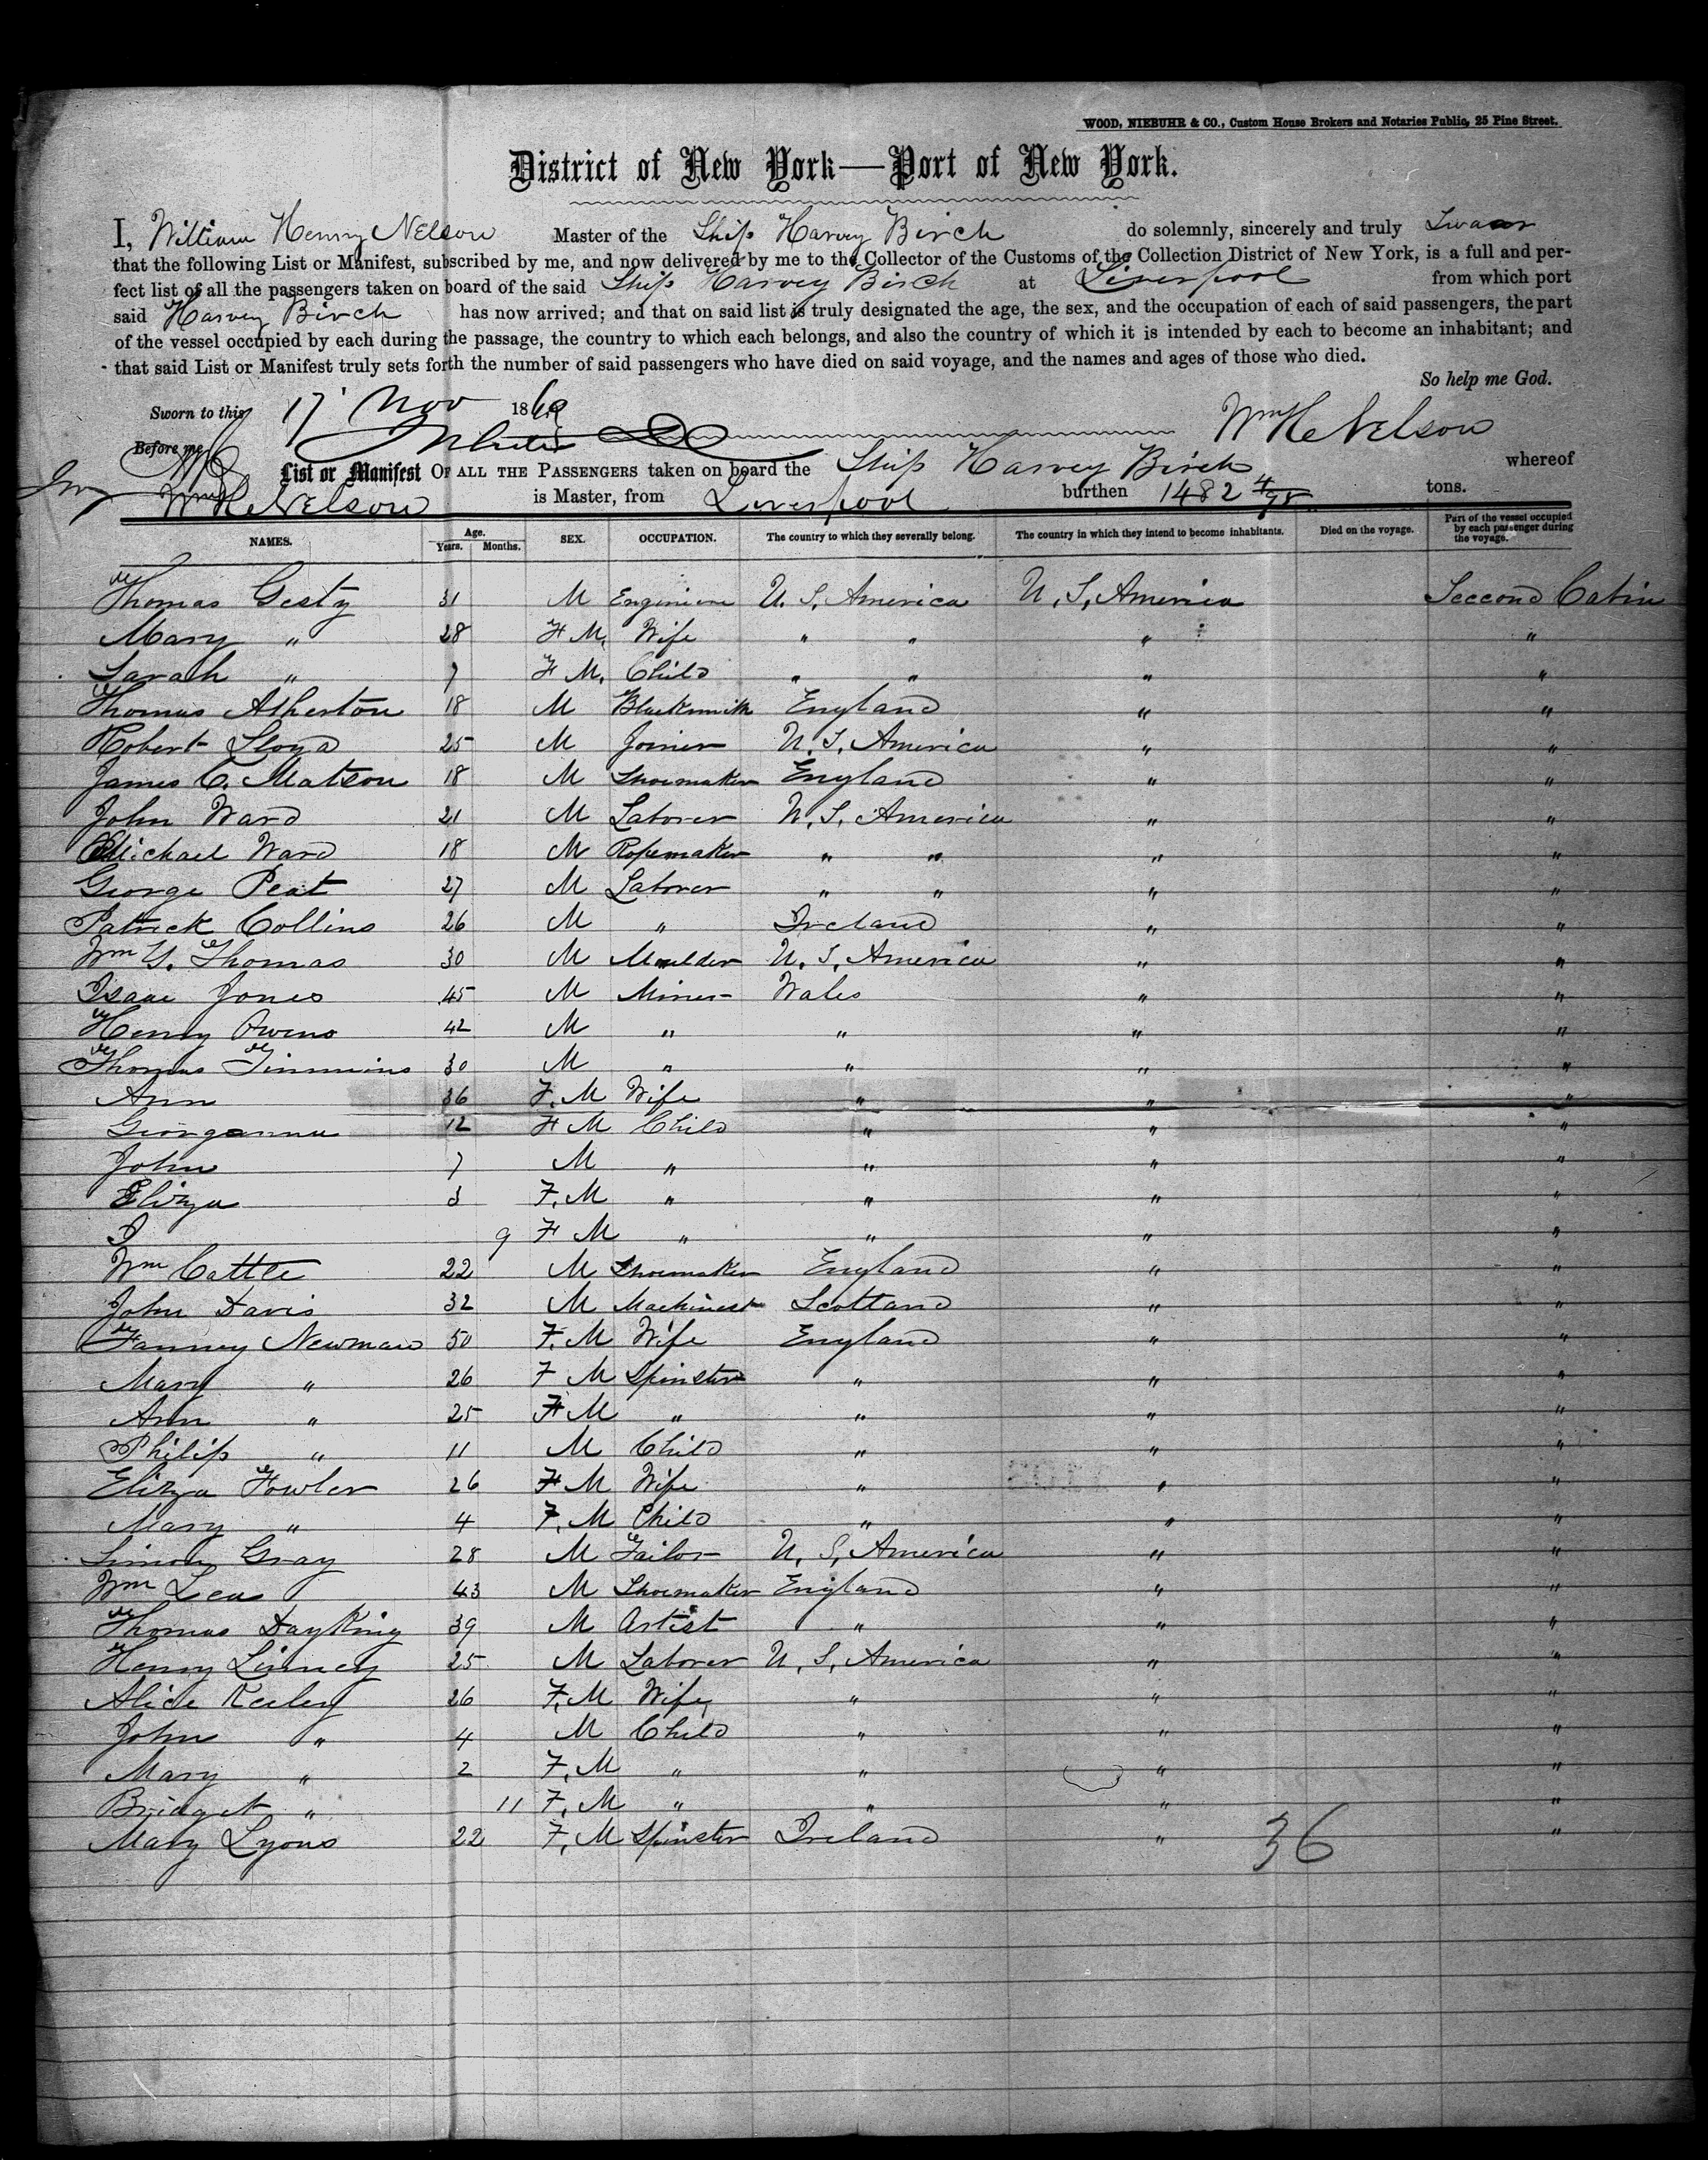 WOOD, NIEBUHR & CO., Custom House Brokers and Notaries Public, 25 Pine Street.
District of New York—Port of New York.
I, William Henry Nelson Master of the Ship Harvey Birch do solemnly, sincerely and truly Swear
that the following List or Manifest, subscribed by me, and now delivered by me to the Collector of the Customs of the Collection District of New York, is a full and per-
fect list of all the passengers taken on board of the said Ship Harvey Birch at Liverpool from which port
said Harvey Birch has now arrived; and that on said list is truly designated the age, the sex, and the occupation of each of said passengers, the part
of the vessel occupied by each during the passage, the country to which each belongs, and also the country of which it is intended by each to become an inhabitant; and
that said List or Manifest truly sets forth the number of said passengers who have died on said voyage, and the names and ages of those who died.
So help me God.
Sworn to this 17 Nov 1860
Wm H Nelson
Before me
List or Manifest OF ALL THE PASSENGERS taken on board the Ship Harvey Birch whereof
Wm H Nelson is Master, from Liverpool burthen 1482 4/95 tons.
NAMES. Age. Years. Months. SEX. OCCUPATION. The country to which they severally belong. The country in which they intend to become inhabitants. Died on the voyage. Part of the vessel occupied by each passenger during the voyage.
Thomas Gesty 31 M U. S. America U. S. America Seccond Cabin
Mary " 28 F M. Wife " " " "
Sarah " 7 F M. Child " " " "
Thomas Atherton 18 M Blacksmith England " "
Robert Lloyd 25 M Joiner U. S. America " "
James C. Matson 18 M Shoemaker England " "
John Ward 21 M Laborer U. S. America " "
Michael Ward 18 M Ropemaker " " " "
George Peat 27 M Laborer " " " "
Patrick Collins 26 M " Ireland " "
Wm Y. Thomas 30 M Moulder U. S. America " "
Isaac Jones 45 M Miner Wales " "
Henry Owens 42 M " " " "
Thomas Timmins 30 M " " " "
Ann 36 F. M Wife " " "
Georganna 12 F M Child " " "
John 7 M " " " "
Eliza 3 F. M " " " "
9 F M " " " "
Wm Cattle 22 M Shoemaker England " "
John Davis 32 M Machinest Scotland " "
Fanney Newman 50 F. M Wife England " "
Mary " 26 F M Spinster " " "
Ann " 25 F M " " " "
Philip " 11 M Child " " "
Eliza Fowler 26 F M Wife " " "
Mary " 4 F. M Child " " "
Simon Gray 28 M Tailor U. S. America " "
Wm Leas 43 M Shoemaker England " "
Thomas DayKing 39 M Artist " " "
Henry Linney 25 M Laborer U. S. America " "
Alice Keeley 26 F. M Wife " " "
John " 4 M Child " " "
Mary " 2 F. M " " " "
Bridget " 11 F. M " " " "
Mary Lyons 22 F. M Spinster Ireland " "
36